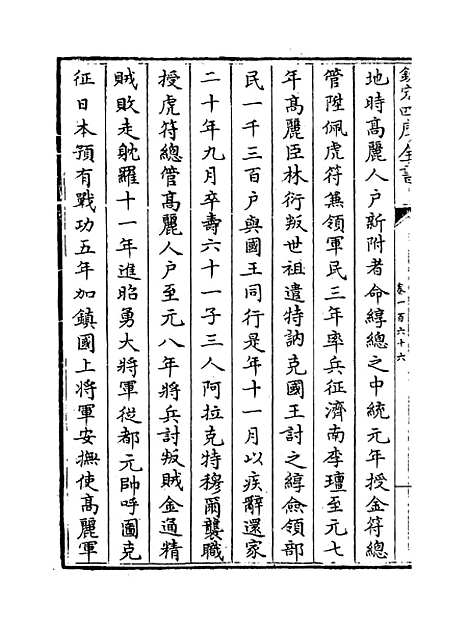 欽定四庫全書
卷一百六十六
地時高麗人户新附者命綧總之中統元年授金符總
管陞佩虎符兼領軍民三年率兵征濟南李璮至元七
年高麗臣林衍叛世祖遣特訥克國王討之綧僉領部
民一千三百户與國王同行是年十一月以疾辭還家
二十年九月卒壽六十一子三人阿拉克特穆爾襲職
授虎符總管高麗人户至元八年將兵討叛賊金通精
賊敗走躭羅十一年進昭勇大將軍從都元帥呼圖克
征日本預有戰功五年加鎮國上將軍安撫使高麗軍